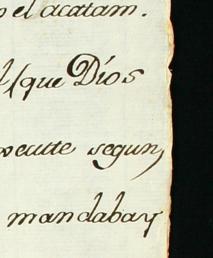 o el acatam.
que Dios
ecute segun,
mandabay